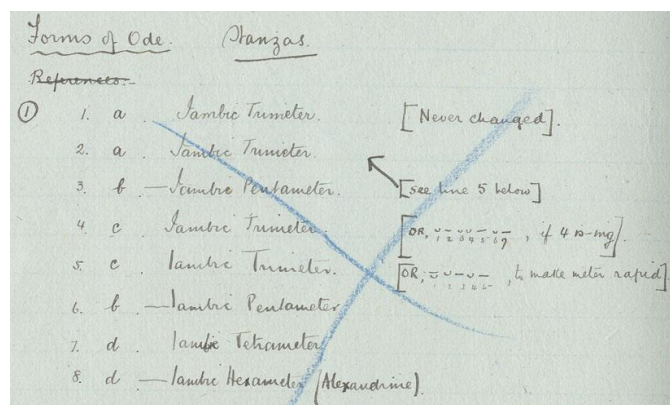 Forms of Ode. Stanzas.
References:-
① 1. a . Iambic Trimeter. [Never changed].
2. a . Iambic Trimeter.
3. b — Iambic Pentameter. [see line 5 below]
4. c Iambic Trimeter. [OR, ⏑ – ⏑⏑ – ⏑ –, if 4 is -ing].
1 2 3 4 5 6 7
5. c . Iambic Trimeter. [OR, ⏑ ⏑ – ⏑ –, to make meter rapid]
6. b — Iambic Pentameter
7. d . Iambic Tetrameter
8. d — Iambic Hexameter (Alexandrine).